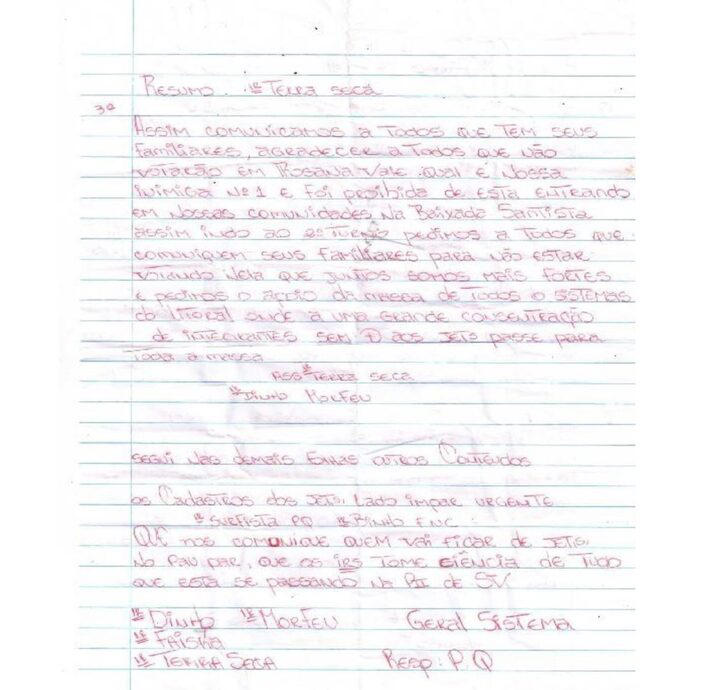 Resumo. Terra seca
3º
Assim comunicamos a Todos que tem seus
familiares, agradecer a Todos que não
votarão em Rosana Vale qual é nossa
inimiga nº 1 e foi proibida de esta entrando
em nossas comunidades na Baixada Santista
assim indo ao 2º turno pedimos a Todos que
comuniquem seus familiares para não estar
votando nela que juntos somos mais fortes
e pedimos o apoio da massa de Todos o sistemas
do litoral onde a uma grande consentração
de integrantes sem + aos jets passe para
Toda a massa
Ass Terra seca
Dinho Morfeu
segui nas demais outros Conteudos
os Cadastros dos jets. Lado impar urgente
Surfista PQ Binho FNC.
QE nos comunique quem vai ficar de jets.
no pav par, que os irs tome ciência de tudo
que esta se passando na PI de SV
Dinho Morfeu Geral Sistema
Faiska
Terra Seca Resp: P.Q